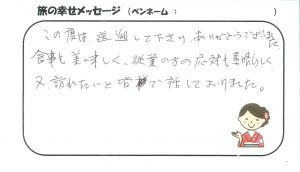 旅の幸せメッセージ （ペンネーム： ）
この度は送迎して下さり、ありがとうございました
食事も美味しく、従業の方の応対も素晴らしく
又、訪れたいと皆で話しておりました。